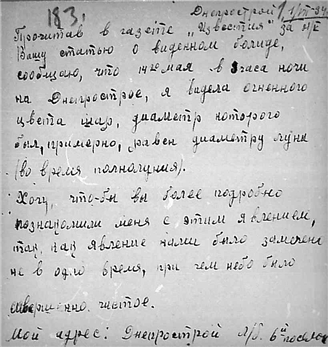 183.
Днепрострой 1/VI-34
Прочитав в газете „Известия" за
Вашу статью о виденном болиде,
сообщаю, что мая в 3 часа ночи
на Днепрострое, я видела огненного
цвета шар, диаметр которого
был, примерно, равен диаметру луны
(во время полнолуния).
Хочу, что-бы вы более подробно
познакомили меня с этим явлением,
так как явление нами было замечено
не в одно время, при чем небо было
совершенно чистое.
Мой адрес: Днепрострой п/о. 6й поселок